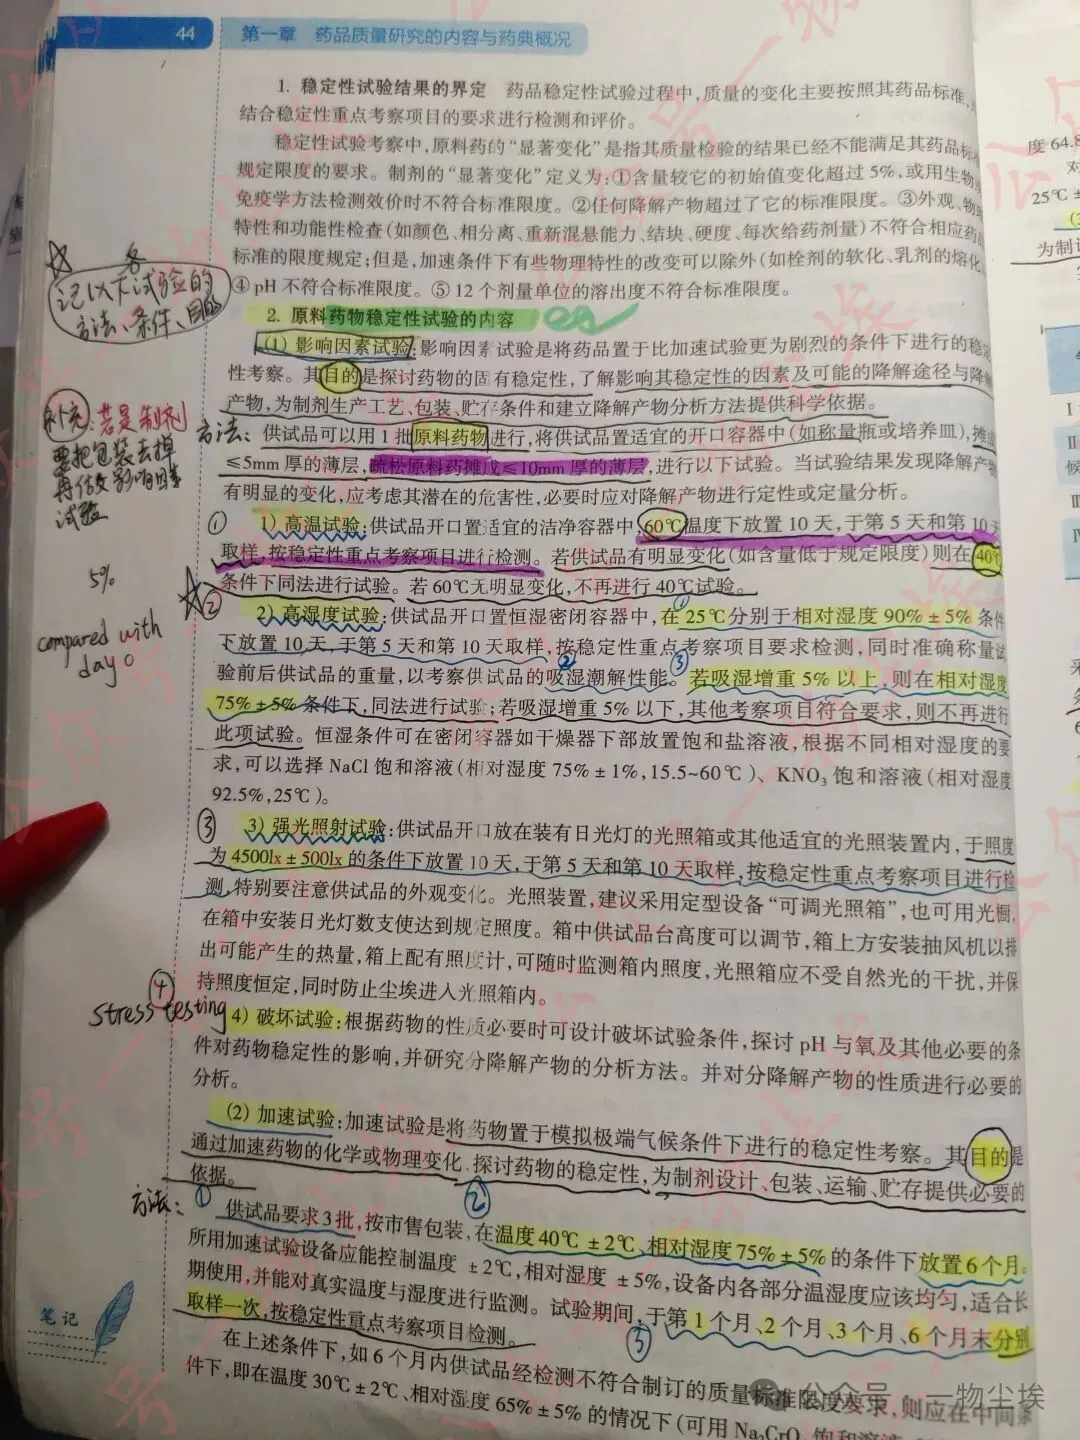 44 第一章 药品质量研究的内容与药典概况
1. 稳定性试验结果的界定 药品稳定性试验过程中,质量的变化主要按照其药品标准,
结合稳定性重点考察项目的要求进行检测和评价。
稳定性试验考察中,原料药的“显著变化”是指其质量检验的结果已经不能满足其药品标
规定限度的要求。制剂的“显著变化”定义为:①含量较它的初始值变化超过5%,或用生物
免疫学方法检测效价时不符合标准限度。②任何降解产物超过了它的标准限度。③外观、物
特性和功能性检查(如颜色、相分离、重新混悬能力、结块、硬度、每次给药剂量)不符合相应药
标准的限度规定;但是,加速条件下有些物理特性的改变可以除外(如栓剂的软化、乳剂的熔化
④ pH 不符合标准限度。⑤ 12 个剂量单位的溶出度不符合标准限度。
记以下各试验的
方法、条件、目的
2. 原料药物稳定性试验的内容
(1) 影响因素试验:影响因素试验是将药品置于比加速试验更为剧烈的条件下进行的稳
性考察。其目的是探讨药物的固有稳定性,了解影响其稳定性的因素及可能的降解途径与降
产物,为制剂生产工艺、包装、贮存条件和建立降解产物分析方法提供科学依据。
补充:若是制剂
要把包装去掉
再做影响因素
试验
方法:供试品可以用1批原料药物进行,将供试品置适宜的开口容器中(如称量瓶或培养皿),摊
≤5mm 厚的薄层,疏松原料药摊成≤10mm 厚的薄层,进行以下试验。当试验结果发现降解产
有明显的变化,应考虑其潜在的危害性,必要时应对降解产物进行定性或定量分析。
① 1) 高温试验:供试品开口置适宜的洁净容器中,60℃温度下放置10天,于第5天和第10天
取样,按稳定性重点考察项目进行检测。若供试品有明显变化(如含量低于规定限度)则在40℃
条件下同法进行试验。若60℃无明显变化,不再进行40℃试验。
5%
compared with
day 0
② 2) 高湿度试验:供试品开口置恒湿密闭容器中,在25℃分别于相对湿度90%±5%条件
下放置10天,于第5天和第10天取样,按稳定性重点考察项目要求检测,同时准确称量试
验前后供试品的重量,以考察供试品的吸湿潮解性能。若吸湿增重5%以上,则在相对湿度
75%±5%条件下,同法进行试验;若吸湿增重5%以下,其他考察项目符合要求,则不再进行
此项试验。恒湿条件可在密闭容器如干燥器下部放置饱和盐溶液,根据不同相对湿度的要
求,可以选择 NaCl 饱和溶液(相对湿度75%±1%,15.5~60℃)、KNO₃ 饱和溶液(相对湿度
92.5%,25℃)。
③ 3) 强光照射试验:供试品开口放在装有日光灯的光照箱或其他适宜的光照装置内,于照度
为4500lx±500lx的条件下放置10天,于第5天和第10天取样,按稳定性重点考察项目进行检
测,特别要注意供试品的外观变化。光照装置,建议采用定型设备“可调光照箱”,也可用光橱,
在箱中安装日光灯数支使达到规定照度。箱中供试品台高度可以调节,箱上方安装抽风机以排
出可能产生的热量,箱上配有照度计,可随时监测箱内照度,光照箱应不受自然光的干扰,并保
持照度恒定,同时防止尘埃进入光照箱内。
④
stress testing 4) 破坏试验:根据药物的性质必要时可设计破坏试验条件,探讨 pH 与氧及其他必要的条
件对药物稳定性的影响,并研究分降解产物的分析方法。并对分降解产物的性质进行必要的
分析。
(2) 加速试验:加速试验是将药物置于模拟极端气候条件下进行的稳定性考察。其目的是
通过加速药物的化学或物理变化,探讨药物的稳定性,为制剂设计、包装、运输、贮存提供必要的
依据。
方法:① 供试品要求3批,按市售包装,在温度40℃±2℃、相对湿度75%±5%的条件下放置6个月。
所用加速试验设备应能控制温度±2℃,相对湿度±5%,设备内各部分温湿度应该均匀,适合长
期使用,并能对真实温度与湿度进行监测。试验期间,于第1个月、2个月、3个月、6个月末分别
取样一次,按稳定性重点考察项目检测。
在上述条件下,如6个月内供试品经检测不符合制订的质量标准限度要求,则应在中间条
件下,即在温度30℃±2℃、相对湿度65%±5%的情况下(可用 Na₂CrO₄ 饱和溶液
笔记
公众号·一物尘埃
度64.8
对
25℃±
为制